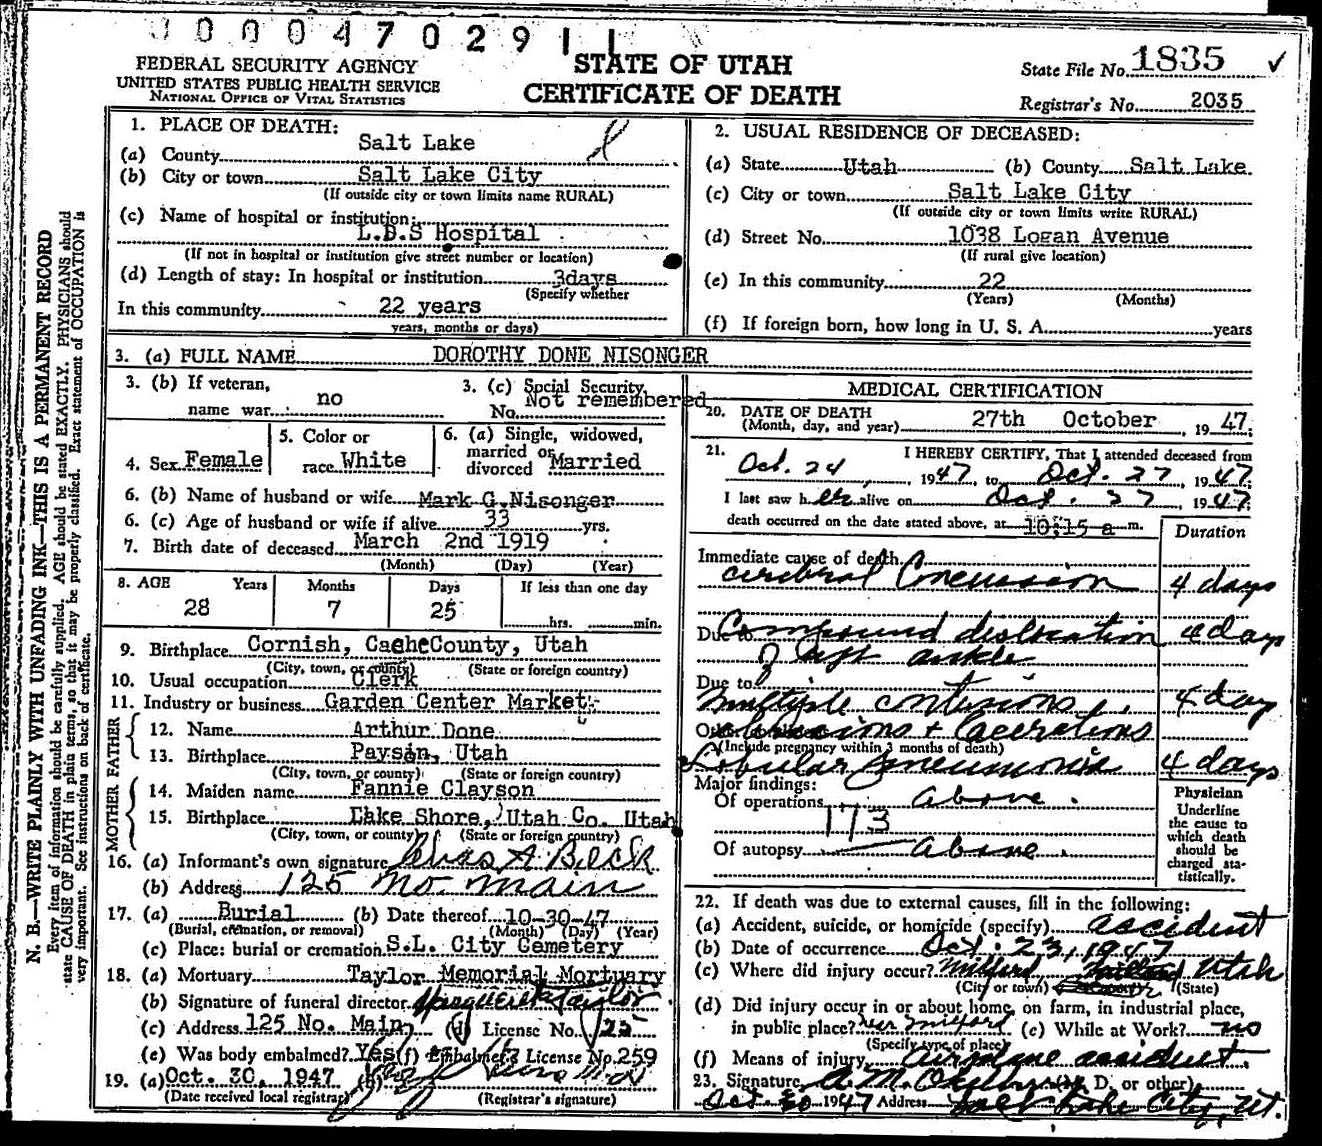 0000470291
FEDERAL SECURITY AGENCY
UNITED STATES PUBLIC HEALTH SERVICE
NATIONAL OFFICE OF VITAL STATISTICS
STATE OF UTAH
CERTIFICATE OF DEATH
State File No. 1835 ✓
Registrar's No. 2035
N. B.—WRITE PLAINLY WITH UNFADING INK—THIS IS A PERMANENT RECORD
Every item of information should be carefully supplied. AGE should be stated EXACTLY. PHYSICIANS should
state CAUSE OF DEATH in plain terms, so that it may be properly classified. Exact statement of OCCUPATION is
very important. See instructions on back of certificate.
1. PLACE OF DEATH:
(a) County Salt Lake
(b) City or town Salt Lake City
(If outside city or town limits name RURAL)
(c) Name of hospital or institution:
L.D.S Hospital
(If not in hospital or institution give street number or location)
(d) Length of stay: In hospital or institution 3days
(Specify whether
In this community 22 years
years, months or days)
2. USUAL RESIDENCE OF DECEASED:
(a) State Utah (b) County Salt Lake
(c) City or town Salt Lake City
(If outside city or town limits write RURAL)
(d) Street No. 1038 Logan Avenue
(If rural give location)
(e) In this community 22
(Years) (Months)
(f) If foreign born, how long in U. S. A. years
3. (a) FULL NAME DOROTHY DONE NISONGER
3. (b) If veteran,
name war no
3. (c) Social Security
No. Not remembered
4. Sex Female
5. Color or
race White
6. (a) Single, widowed,
married or
divorced Married
6. (b) Name of husband or wife Mark G. Nisonger
6. (c) Age of husband or wife if alive 33 yrs.
7. Birth date of deceased March 2nd 1919
(Month) (Day) (Year)
8. AGE Years Months Days If less than one day
28 7 25 hrs. min.
9. Birthplace Cornish, Cache County, Utah
(City, town, or county) (State or foreign country)
10. Usual occupation Clerk
11. Industry or business Garden Center Market
FATHER
12. Name Arthur Done
13. Birthplace Payson, Utah
(City, town, or county) (State or foreign country)
MOTHER
14. Maiden name Fannie Clayson
15. Birthplace Lake Shore, Utah Co. Utah
(City, town, or county) (State or foreign country)
16. (a) Informant's own signature
(b) Address 125 No. Main
17. (a) Burial (b) Date thereof 10-30-47
(Burial, cremation, or removal) (Month) (Day) (Year)
(c) Place: burial or cremation S.L. City Cemetery
18. (a) Mortuary Taylor Memorial Mortuary
(b) Signature of funeral director Taylor
(c) Address 125 No. Main (d) License No. 125
(e) Was body embalmed? Yes (f) Embalmer's License No. 259
19. (a) Oct. 30, 1947 (b)
(Date received local registrar) (Registrar's signature)
MEDICAL CERTIFICATION
20. DATE OF DEATH
(Month, day, and year) 27th October, 1947.
21. I HEREBY CERTIFY, That I attended deceased from
Oct. 24, 1947, to Oct. 27, 1947
I last saw her alive on Oct. 27, 1947
death occurred on the date stated above, at 10:15 a m.
Duration
Immediate cause of death
Cerebral Concussion 4 days
Due to Compound dislocation 4 days
of left ankle
Due to
Multiple contusions, 4 day
abrasions + lacerations
(Include pregnancy within 3 months of death)
Lobular pneumonia 4 days
Major findings:
Of operations above.
173
Of autopsy above.
Physician
Underline
the cause to
which death
should be
charged sta-
tistically.
22. If death was due to external causes, fill in the following:
(a) Accident, suicide, or homicide (specify) accident
(b) Date of occurrence Oct. 23, 1947
(c) Where did injury occur? Milford Utah
(City or town) (County) (State)
(d) Did injury occur in or about home, on farm, in industrial place,
in public place? near Milford (e) While at Work? no
(Specify type of place)
(f) Means of injury airplane accident.
23. Signature A. M. (M. D. or other)
Oct. 30 1947 Address Salt Lake City, Ut.